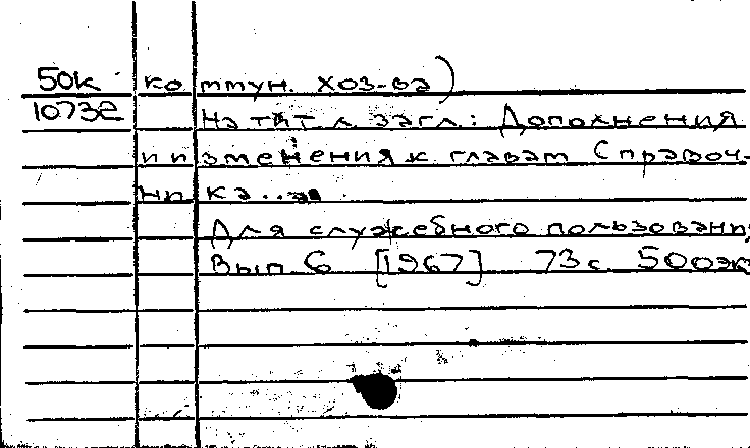 50к коммун. хоз-ва)
10732 На тит. л. загл.: Дополнения
и изменения к главам Справоч-
ника...
Для служебного пользовани
Вып. 6 [1967] 73 с 500эк